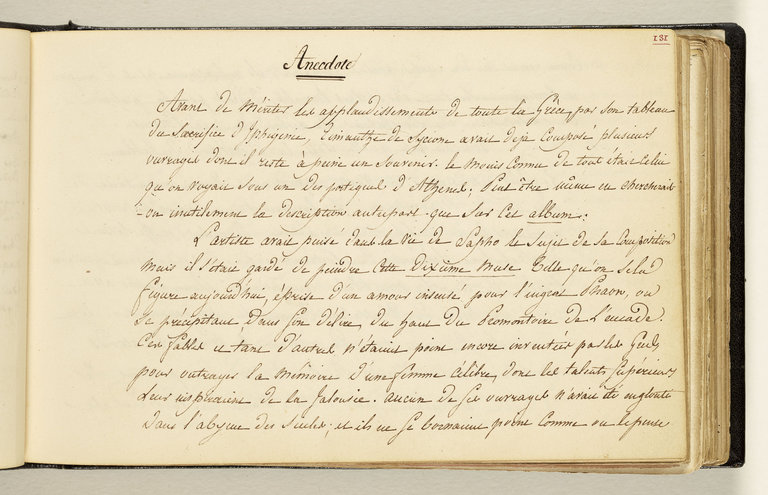 131
Anecdote
Avant de mériter les applaudissements de toute la Grèce, par son tableau
du Sacrifice d'Iphigénie, Timanthe de Sycione avait déjà composé plusieurs
ouvrages dont il reste à peine un souvenir. le moins connu de tout était celui
qu'on voyait sous un des portiques d'Athenes. Peut être même en chercherait
-on inutilement la description autre part que sur cet album.
L'artiste avait puisé dans la vie de Sapho le sujet de sa composition
mais il s'était gardé de peindre cette dixième muse telle qu'on se la
figure aujourd'hui, éprise d'un amour insensé pour l'ingrat Phaon, ou
se précipitant, dans son délire, du haut du Promontoire de Leucade.
Ces fables et tant d'autres n'étaient point encore inventées par les Grecs
pour outrager la mémoire d'une femme célèbre, dont les talents supérieurs
leur inspiraient de la jalousie. aucun de ses ouvrages n'avait été englouti
dans l'abyme des siecles; et ils ne se bornaient point comme on le pense